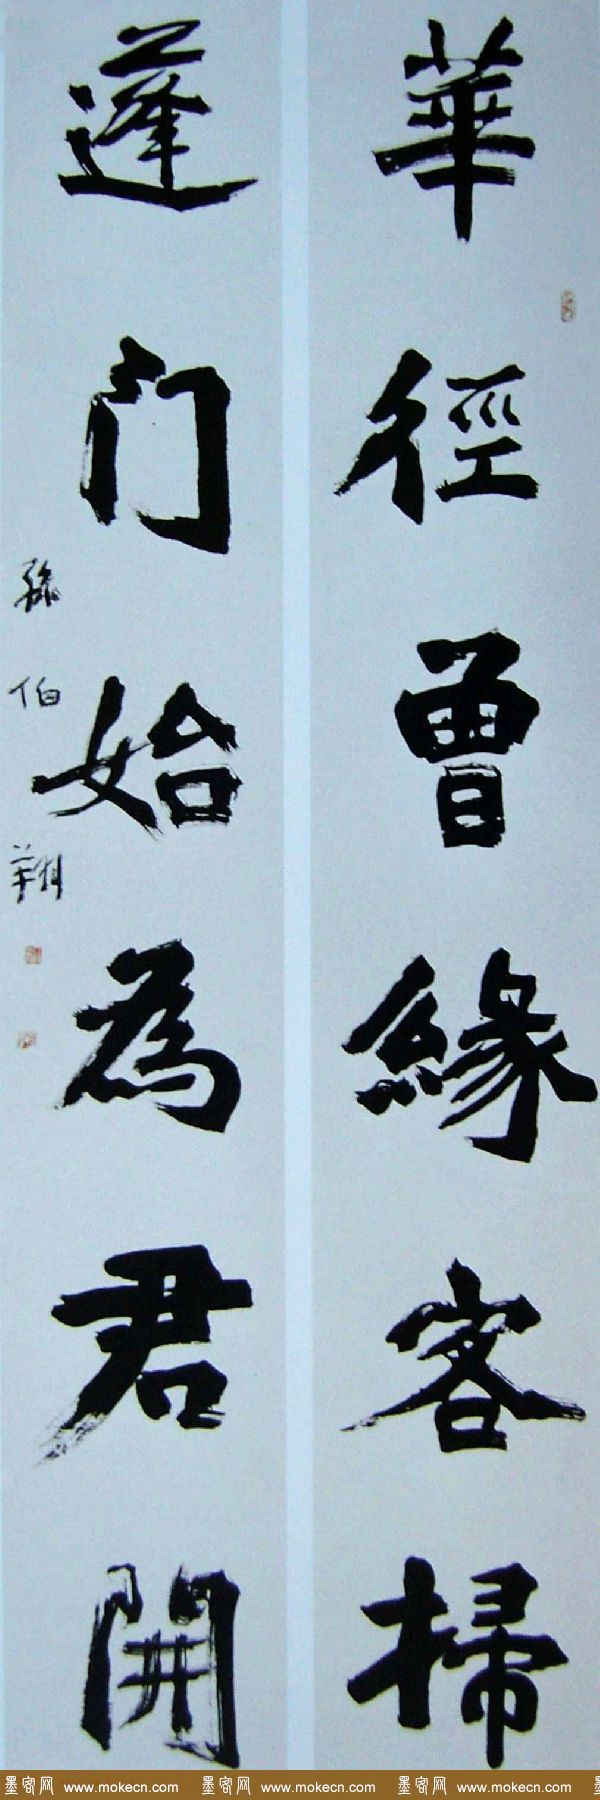 華徑曾緣客掃
蓬门始為君開
孫伯翔
墨客网 www.mokecn.com 墨客网 www.mokecn.com 墨客网 www.mokecn.com